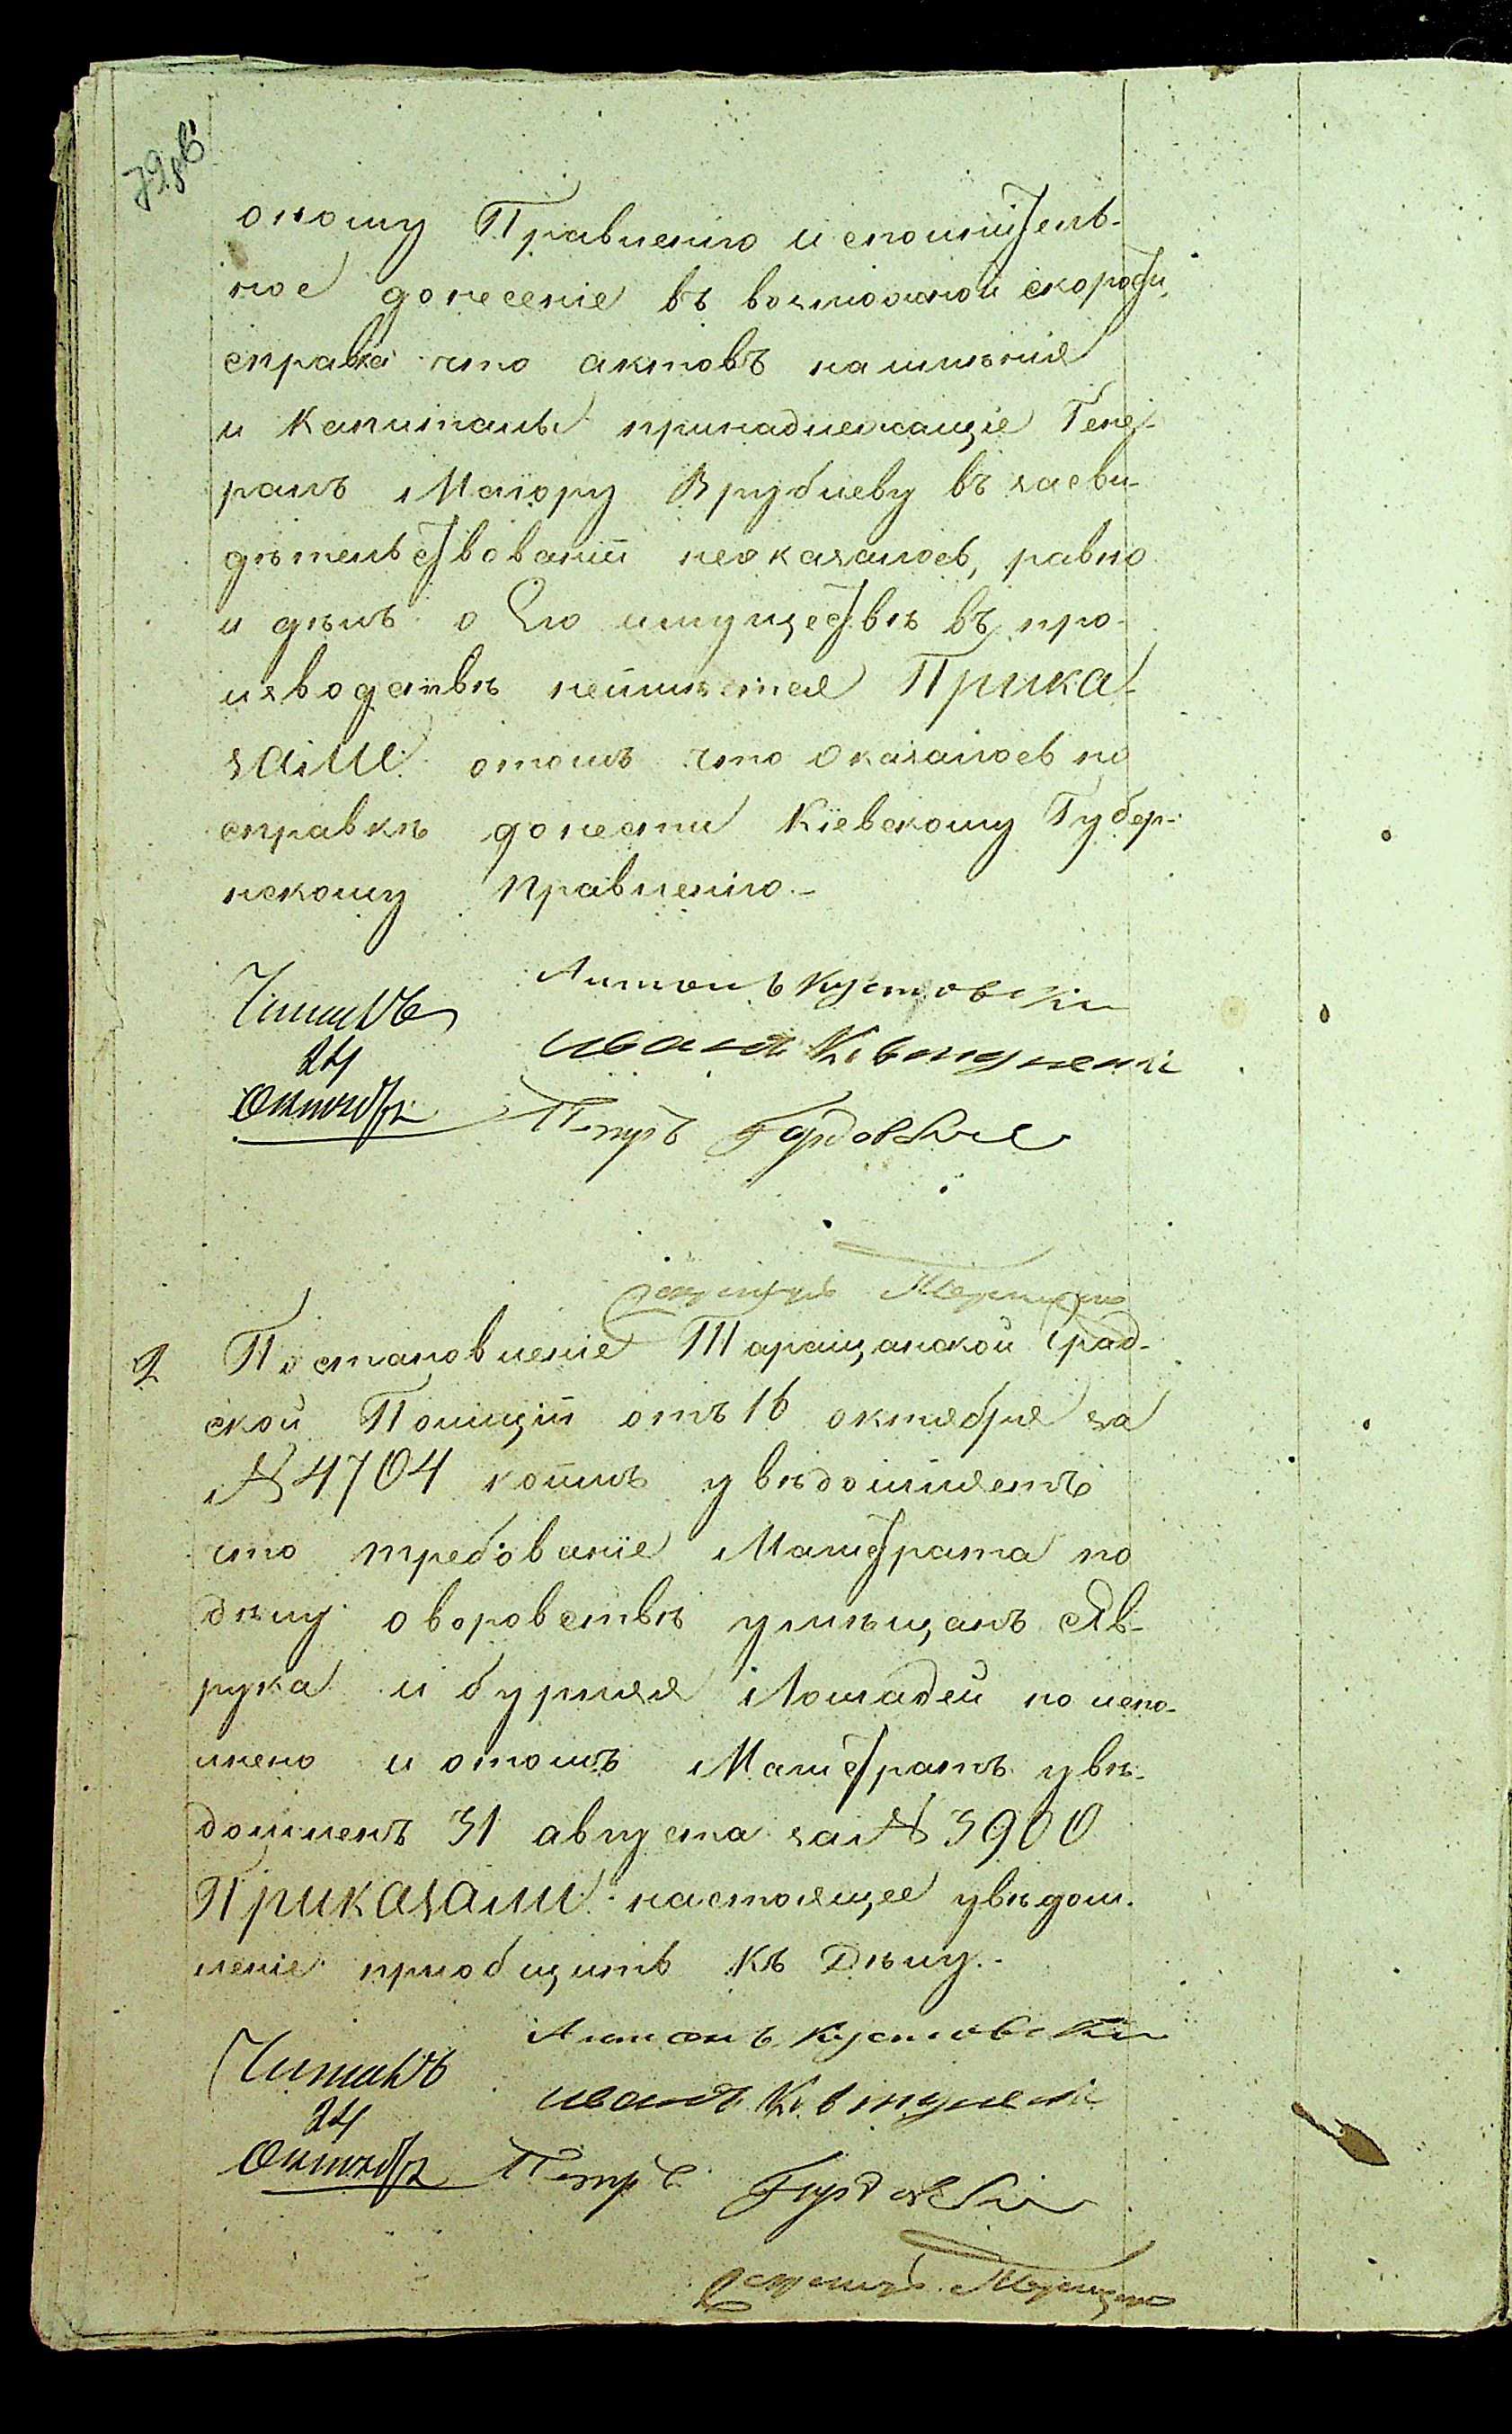 оному Правленію исполнитель-
ное донесеніе въ возможной скорости,
справка что актовъ наимѣніе
и капиталы принадлежащіе Гене-
ралъ Маіору Врублеву въ засви-
дѣтельствованіи неоказалось, равно
и дѣлъ о Его имуществѣ въ про-
изводствѣ неимѣется Прика-
зали отомъ что оказалось по
справкѣ донести Кіевскому Губер-
нскому Правленію.-
Читалъ
24
Октября
Антонъ Кустовскій
Иванъ
Петръ
2 Постановленіе Таращанской Град-
ской Полиціи отъ 16 октября за
№ 4704 коимъ увѣдомляетъ
что требованіе Магистрата по
дѣлу оворовствѣ умѣщанъ
рука и бурлая Лошадей по испо-
лнено и отомъ Магистратъ увѣ-
домленъ 31 августа за № 3900
Приказали настоящее увѣдом-
леніе пріобщить къ Дѣлу.-
Читалъ
24
Октября
Антонъ Кустовскій
Иванъ
Петръ